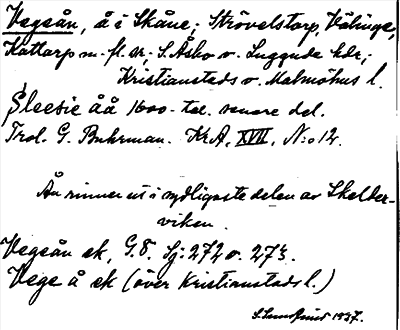 Vegeån, å i Skåne; Strövelstorp, Välinge,
Kattarp m. fl. sn; S. Åsbo o. Luggude hdr;
Kristianstads o. Malmöhus l.
Sleesie åå 1600-tal. senare del.
Trol. G. Buhrman. KrA, XVII, N:o 12.
Ån rinner ut i sydligaste delen av Skelder-
viken.
Vegeån ek, G.8. Sj: 272 o. 273.
Vege å ek (över Kristianstads l.)
1937.